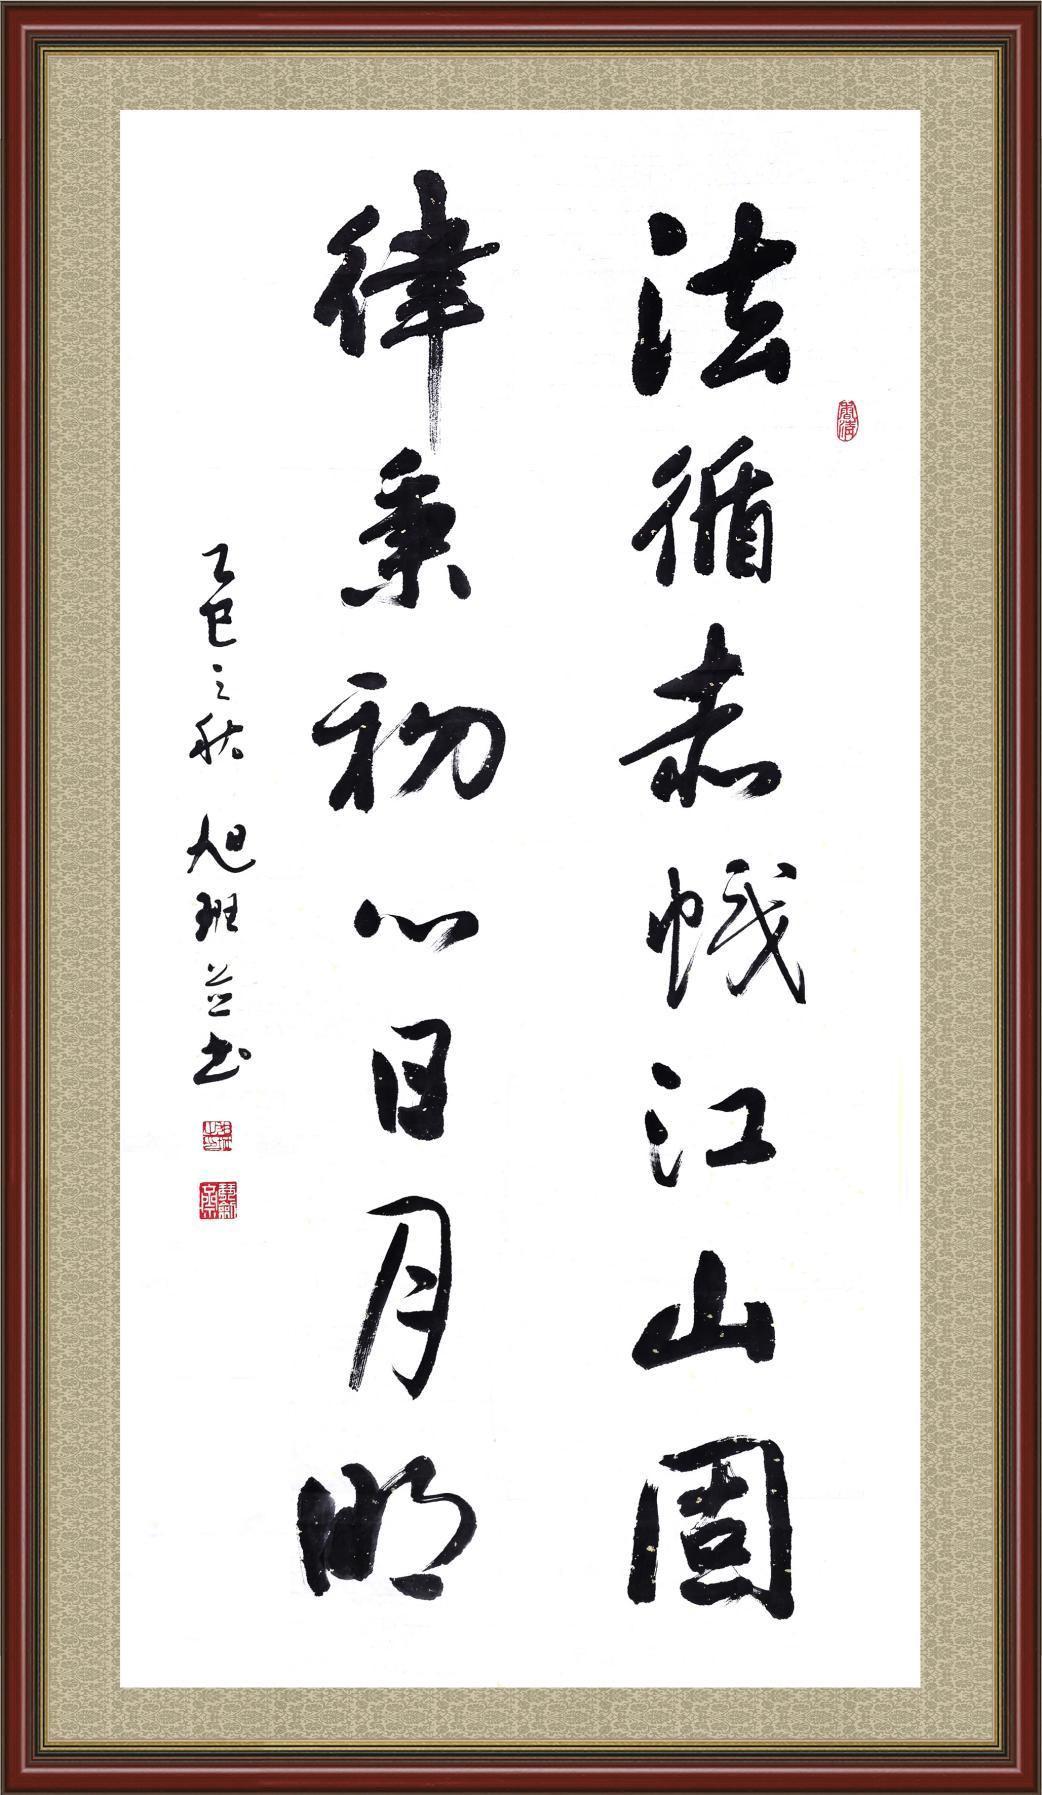 法循赤帜江山固
律秉初心日月明
乙巳之秋 旭班并书